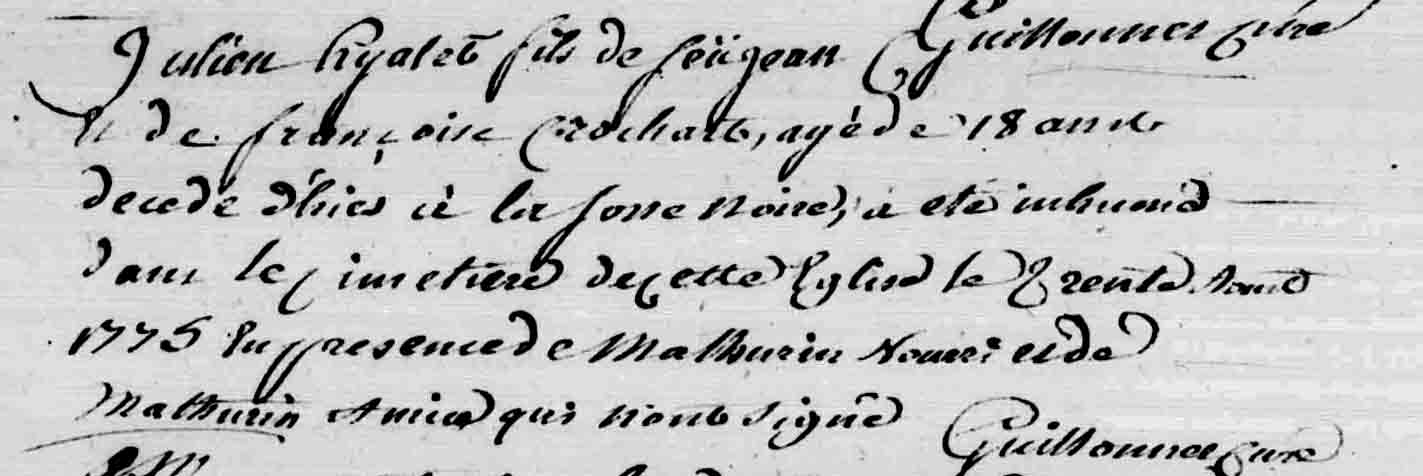 Julien hyalet fils de feu jean Guillonnet curé
et de françoise Crochart, agé de 18 ans
decedé d'hier à la fosse noire, a eté inhumé
dans le cimetiere de cette Eglise le Trente Aout
1775 En presence de Mathurin Nourri et de
Mathurin Amice qui n'ont signé Guillonnet curé